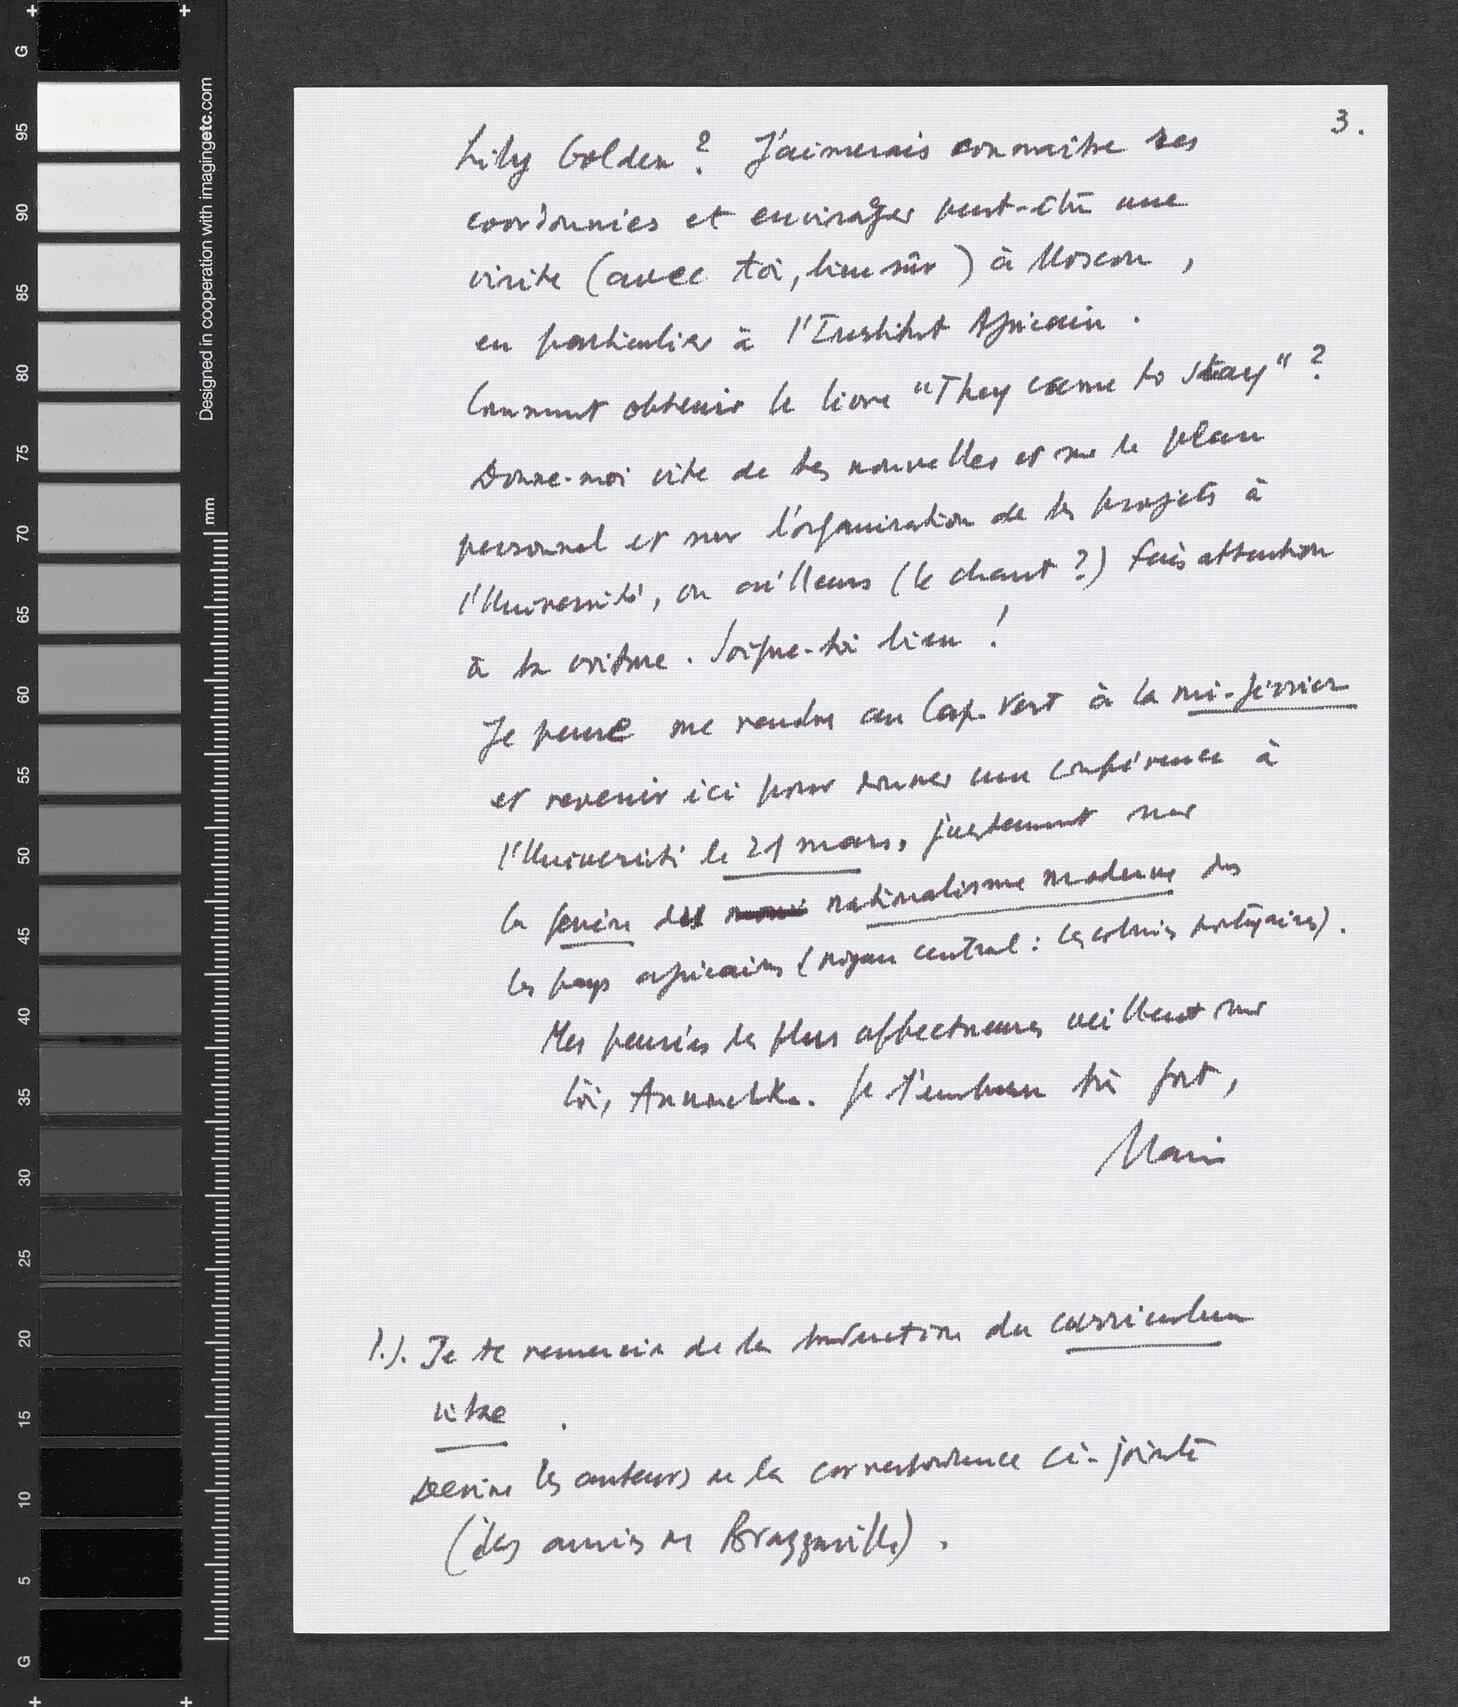 3.
Lily Golden ? J'aimerais connaître ses
coordonnées et envisager peut-être une
visite (avec toi, bien sûr) à Moscou,
en particulier à l'Institut Africain.
Comment obtenir le livre "They came to stay" ?
Donne-moi vite de tes nouvelles et sur le plan
personnel et sur l'organisation de tes projets à
l'Université, ou ailleurs (le chant ?) Fais attention
à ta voiture. Soigne-toi bien !
Je pense me rendre au Cap-Vert à la mi-février
et revenir ici pour donner une conférence à
l'Université le 21 mars, justement sur
la genèse du nationalisme moderne des
les pays africains (noyau central : les colonies portugaises).
Mes pensées les plus affectueuses veillent sur
toi, Annouchka. Je t'embrasse très fort,
Mario
Je te remercie de la traduction du curriculum
vitae.
Devine les auteurs de la correspondance ci-jointe
(des amis de Brazzaville).
G
95
90
85
80
75
70
65
60
55
50
45
40
35
30
25
20
15
10
5
G
Designed in cooperation with imagingetc.com
mm